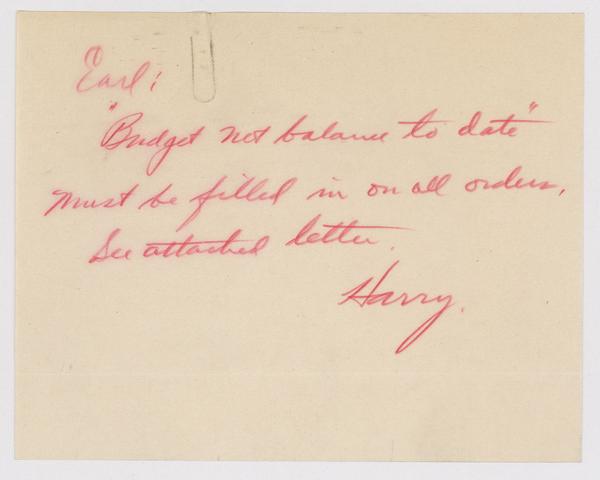 Earl;
"Budget not balance to date"
must be filled in on all orders.
See attached letter.
Harry.